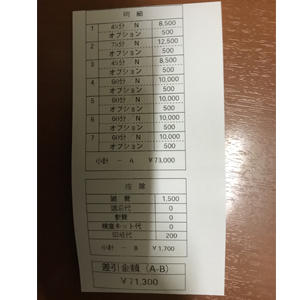 明細
1 45分 N 8,500
オプション 500
2 75分 N 12,500
オプション 500
3 45分 N 8,500
オプション 500
4 60分 N 10,000
オプション 500
5 60分 N 10,000
オプション 500
6 60分 N 10,000
オプション 500
7 60分 N 10,000
オプション 500
小計 - A ¥73,000
控除
雑費 1,500
0
0
検査キット代 0
印紙代 200
小計 - B ¥1,700
差引金額 (A-B)
¥71,300